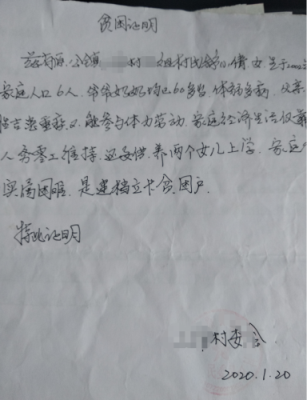 贫困证明
兹有原 公镇 村 组村民 倩 女 生于
家庭人口6人,爷爷奶奶均以60多岁,体弱多病,父亲
患 重疾,不能参与体力劳动,家庭经济生活仅靠
人务零工维持,还要供养两个女儿上学,家庭
实属困难,是建档立卡贫困户.
特此证明
村委会
2020.1.20